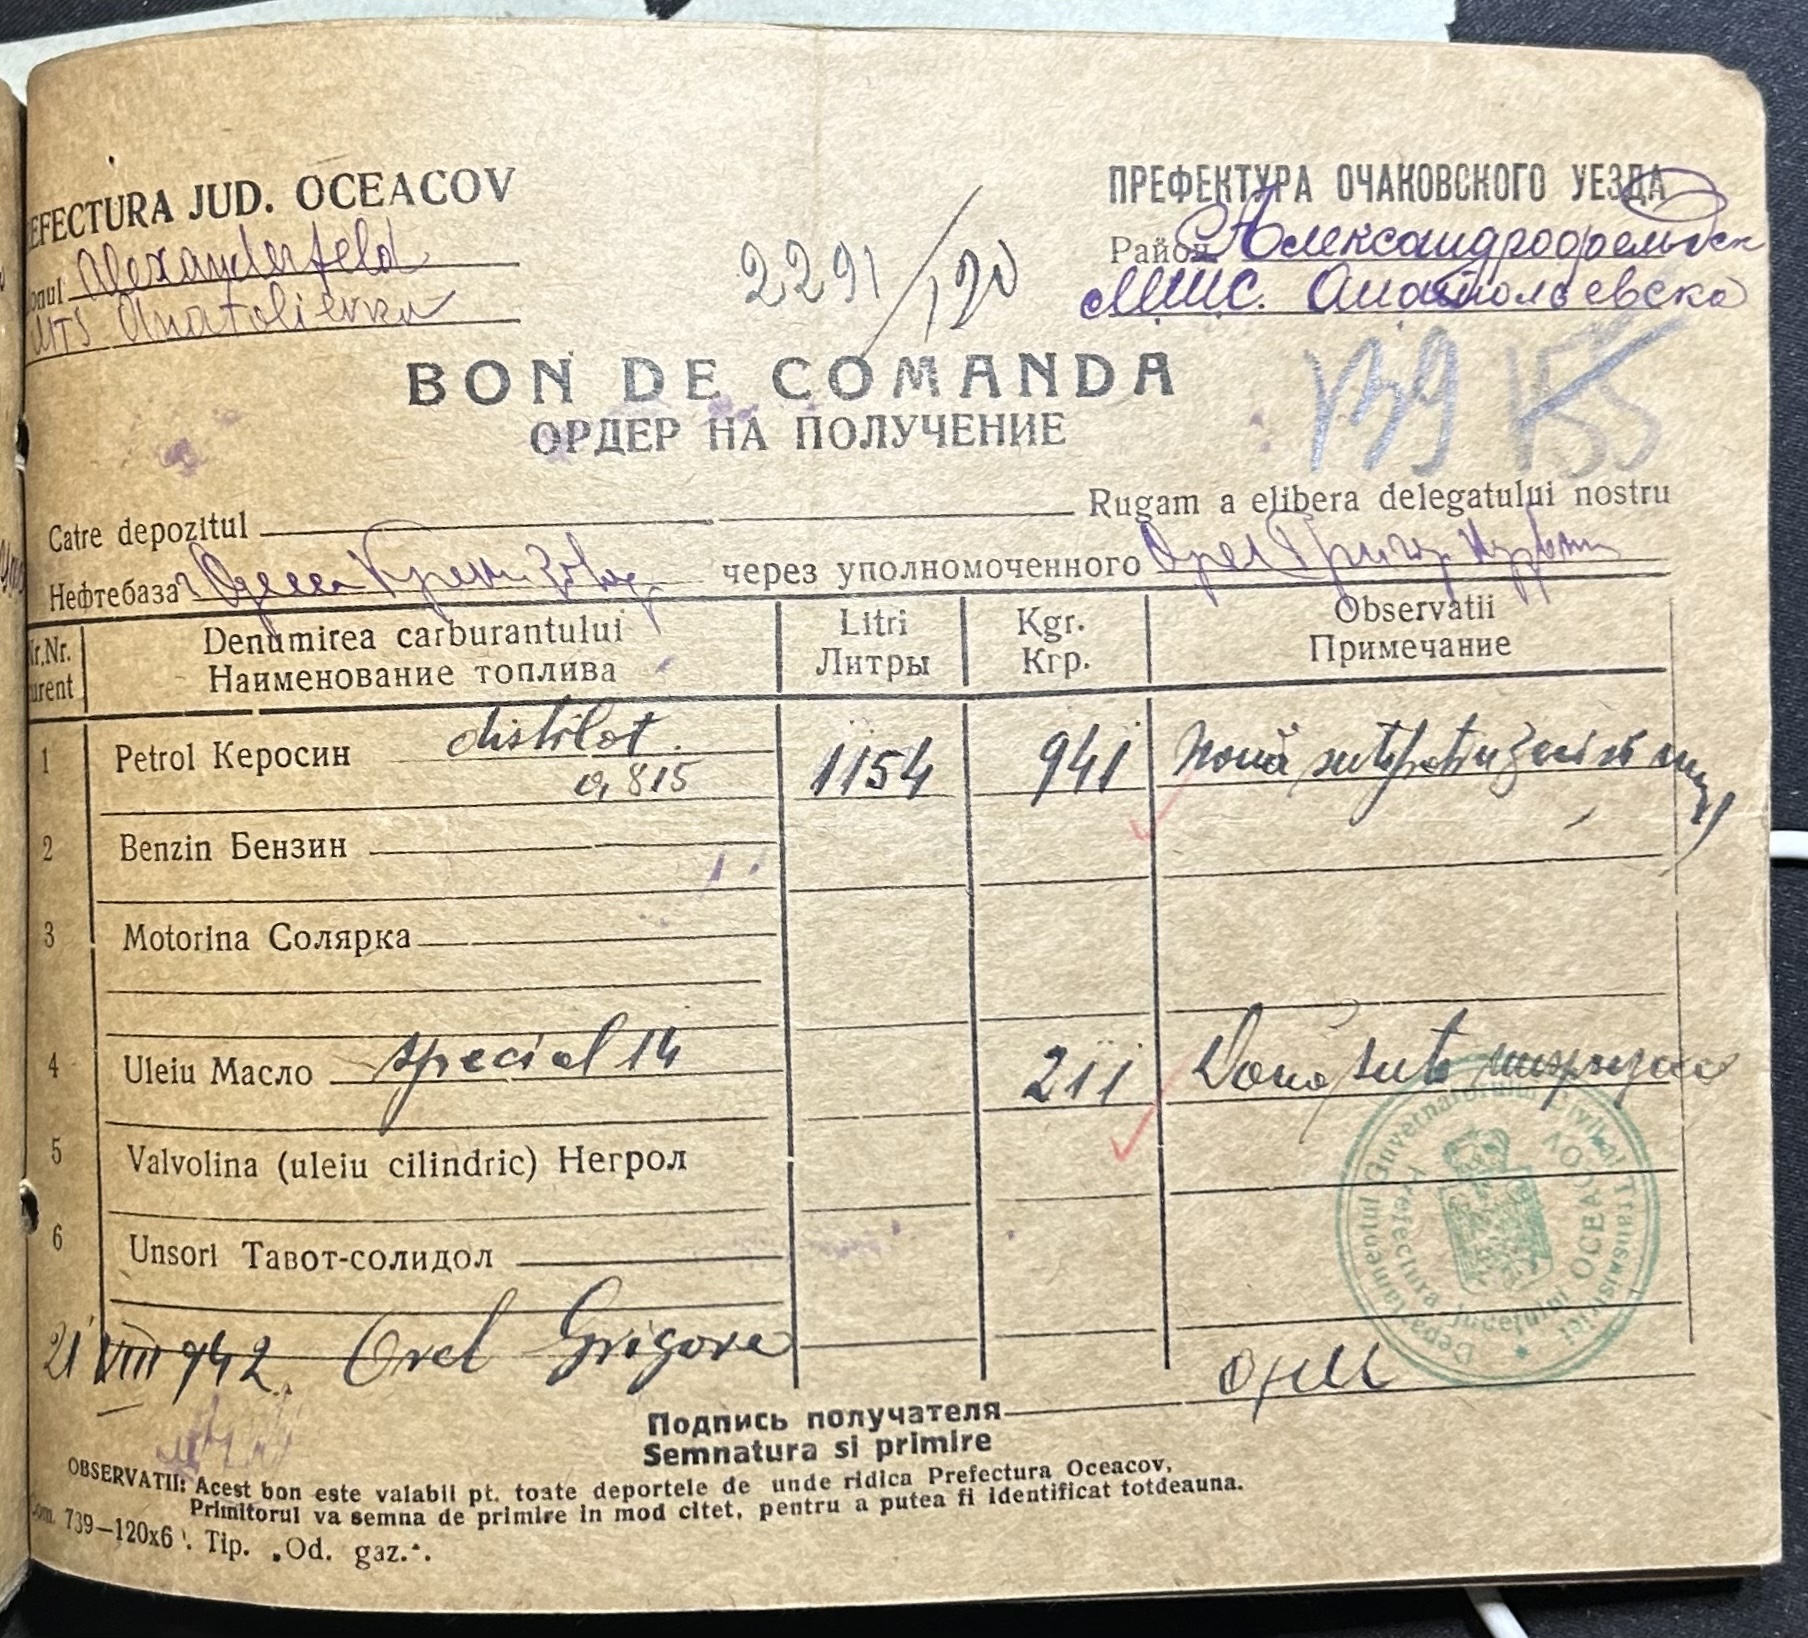 EFECTURA JUD. OCEACOV
onul Alexanderfeld
MTS Anatolievka
2291/120
ПРЕФЕКТУРА ОЧАКОВСКОГО УЕЗДА
Район Александрофельдск
МТС. Анатольевска
BON DE COMANDA
ОРДЕР НА ПОЛУЧЕНИЕ
139 155
Catre depozitul Rugam a elibera delegatului nostru
Нефтебаза Одесса через уполномоченного Орел Григор
Nr. Denumirea carburantului Litri Kgr. Observatii
urent Наименование топлива Литры Кгр. Примечание
1 Petrol Керосин distilat. 1154 941 Nouă sute
0,815
2 Benzin Бензин
3 Motorina Солярка
4 Uleiu Масло special 14 211 Două sute
5 Valvolina (uleiu cilindric) Негрол
6 Unsori Тавот-солидол
21 VIII 942. Orel Grigore
Подпись получателя
Semnatura si primire
OBSERVATII: Acest bon este valabil pt. toate deportele de unde ridica Prefectura Oceacov,
Primitorul va semna de primire in mod citet, pentru a putea fi identificat totdeauna.
om. 739—120x6 Tip. „Od. gaz.“.
Departamentul Guvernatorului Civil al Transnistriei
Prefectura Județului OCEACOV